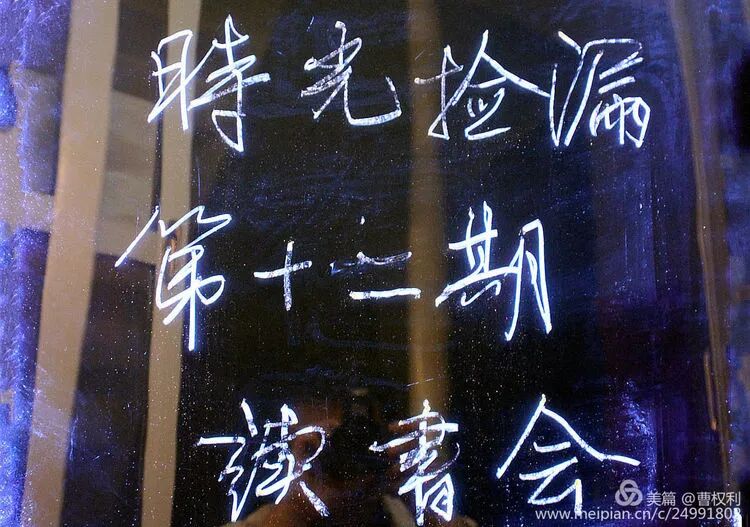 時光捡漏
第十二期
读書会
美篇 @曹权利
www.meipian.cn/c/24991803